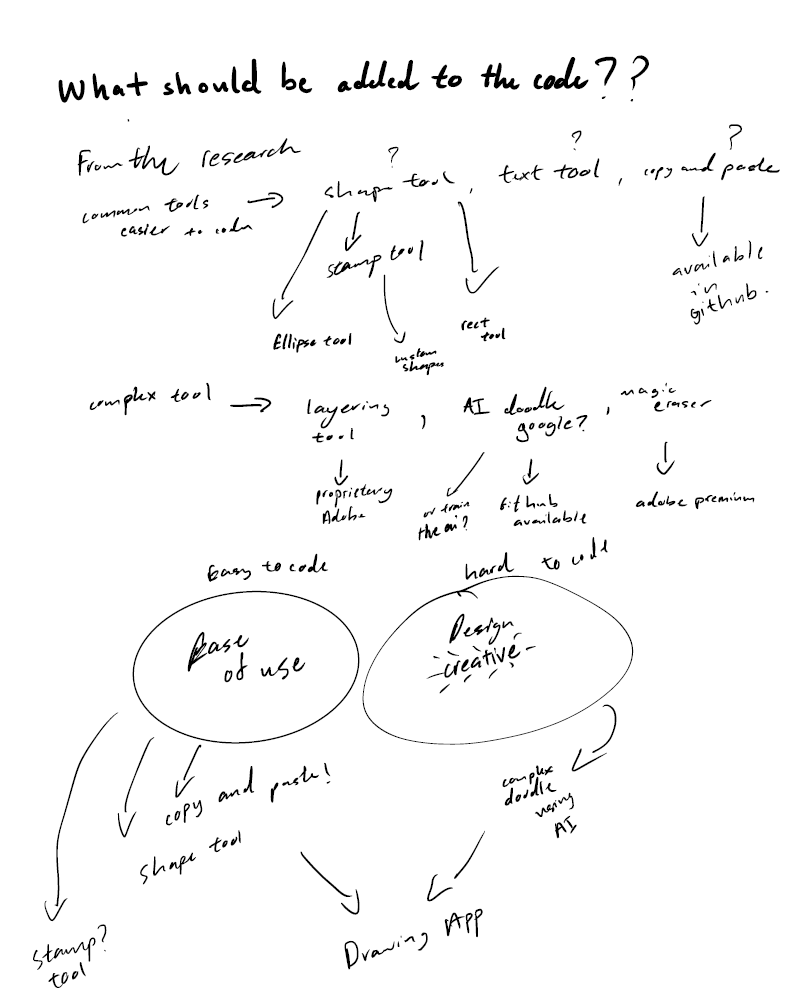 What should be added to the code??
From the research
? ? ?
common tools
easier to code
shape tool, text tool, copy and paste
stamp tool
available
in
Github.
Ellipse tool
custom
shapes
rect
tool
complex tool
layering
tool
,
AI doodle
google?
, magic
eraser
proprietery
Adobe
or train
the ai?
Github
available
adobe premium
Easy to code
hard to code
Ease
of use
Design
creative
copy and paste!
shape tool
stamp?
tool
complex
doodle
using
AI
Drawing App